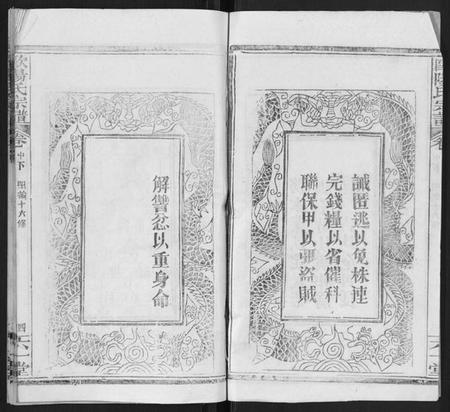 誡匿逃以免株連
完錢糧以省催科
聯保甲以弭盜賊
解讐忿以重身命
歐陽氏宗譜
卷
中下
聖諭十六條
四
六一堂
歐陽氏宗譜
卷
六一堂